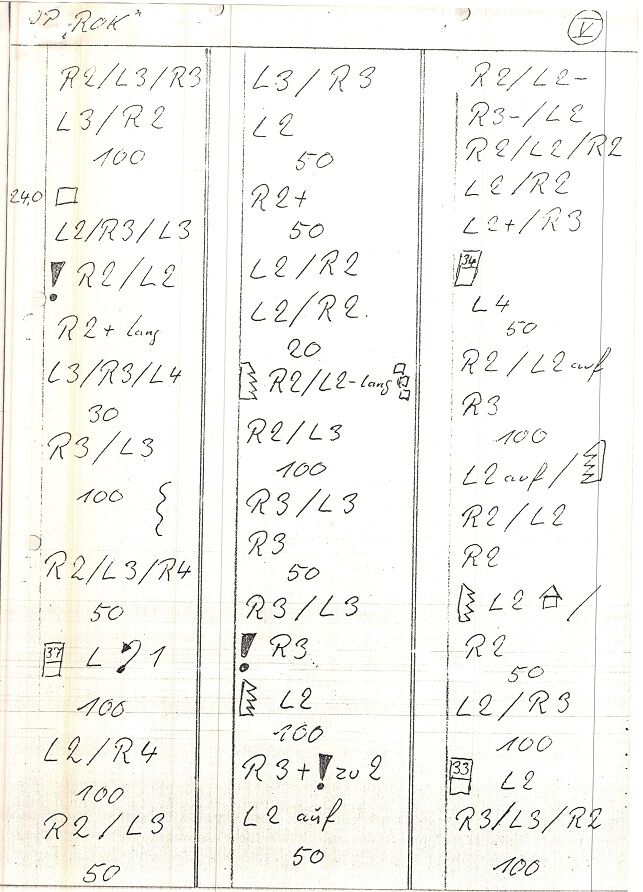 SP „ROK“
V
R2/L3/R3
L3/R2
100
24,0
L2/R3/L3
! R2/L2
R2+ lang
L3/R3/L4
30
R3/L3
100
R2/L3/R4
50
37 L ? 1
100
L2/R4
100
R2/L3
50
L3/R3
L2
50
R2+
50
L2/R2
L2/R2.
20
R2/L2-lang
R2/L3
100
R3/L3
R3
50
R3/L3
! R3
L2
100
R3+! zu 2
L2 auf
50
R2/L2-
R3-/L2
R2/L2/R2
L2/R2
L2+/R3
34
L4
50
R2/L2 auf
R3
100
L2 auf /
R2/L2
R2
L2 /
R2
50
L2/R3
100
33 L2
R3/L3/R2
100